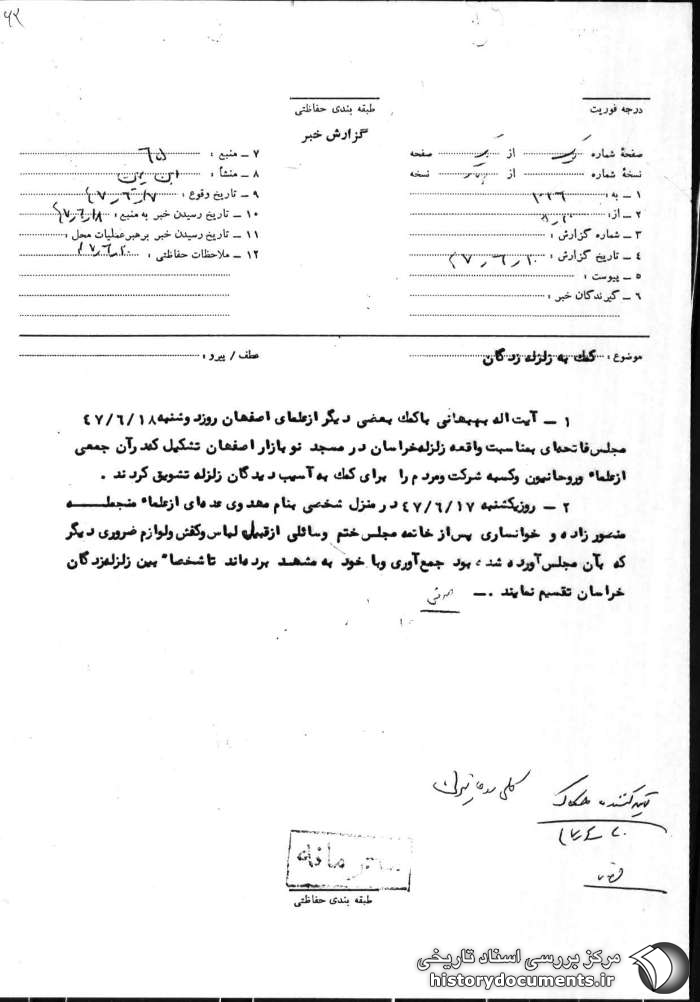 ۶۲
درجه فوریت
طبقه بندی حفاظتی
گزارش خبر
صفحهٔ شماره از صفحه
نسخهٔ شماره از نسخه
۱ – به :
۲ – از :
۳ – شماره گزارش :
۴ – تاریخ گزارش : ۴۷٫۶٫۲۰
۵ – پیوست :
۶ – گیرندگان خبر :
۷ – منبع :
۸ – منشأ :
۹ – تاریخ وقوع : ۴۷٫۶٫۱۷
۱۰ – تاریخ رسیدن خبر به منبع : ۴۷٫۶٫۱۸
۱۱ – تاریخ رسیدن خبر برهبر عملیات محل :
۱۲ – ملاحظات حفاظتی : ۴۷٫۶٫۲۰
موضوع : کمک به زلزله زدگان
عطف / پیرو :
۱ – آیت اله بهبهانی باکمک بعضی دیگر ازعلمای اصفهان روزدوشنبه ۴۷/۶/۱۸
مجلس فاتحه‌ای بمناسبت واقعه زلزله‌خراسان در مسجد نو بازار اصفهان تشکیل که‌در‌آن جمعی
ازعلماء وروحانیون وکسبه شرکت ومردم را برای کمک به آسیب دیدگان زلزله تشویق کردند .
۲ – روزیکشنبه ۴۷/۶/۱۷ در منزل شخصی بنام مهدوی عده‌ای ازعلماء منجمله
منصور زاده و خوانساری پس‌از خاتمه مجلس ختم وسائلی ازقبیل لباس‌وکفش ولوازم ضروری دیگر
که بآن مجلس‌آورده شده بود جمع‌آوری وبا خود به مشهد برده‌اند تا‌شخصاً بین زلزله‌زدگان
خراسان تقسیم نمایند .–
طبقه بندی حفاظتی
مرکز بررسی اسناد تاریخی
historydocuments.ir